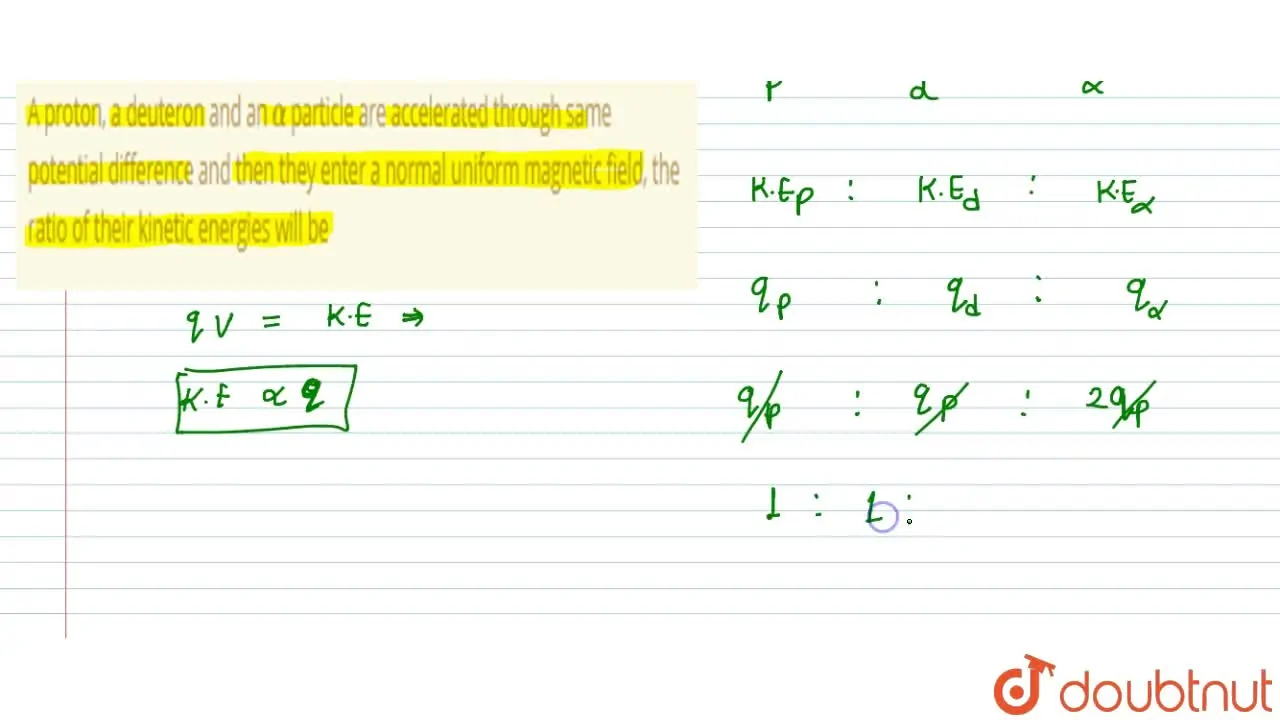 A proton, a deuteron and an α particle are accelerated through same
potential difference and then they enter a normal uniform magnetic field, the
ratio of their kinetic energies will be
qV = K.E ⇒
K.E ∝ q
P d α
K.Ep : K.Ed : K.Eα
qp : qd : qα
qp : qp : 2qp
1 : 1 :
doubtnut